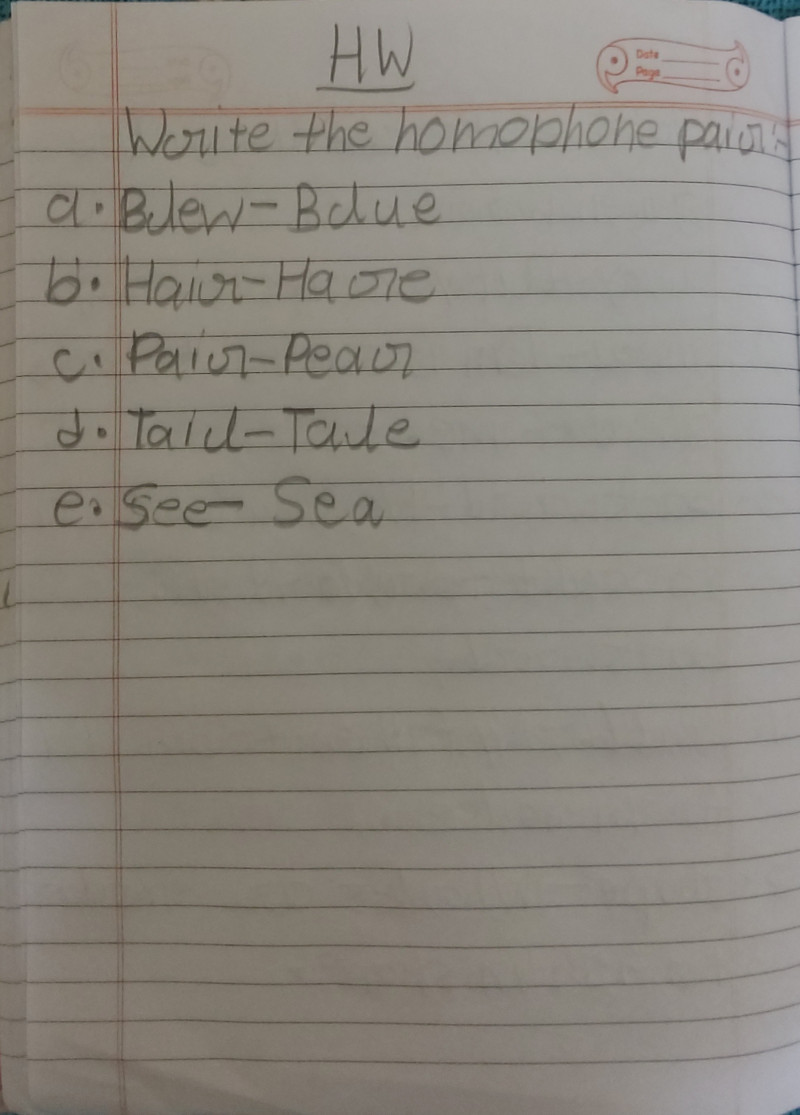 HW
Date
Page
Write the homophone pair:-
a. Blew - Blue
b. Hair - Hare
c. Pair - Pear
d. Tail - Tale
e. See - Sea